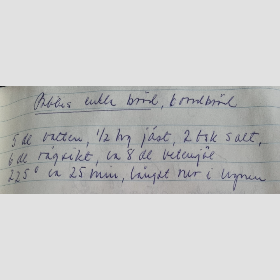 enkla bröd, brödbröd
5 dl vatten, 1/2 hg jäst, 2 tsk salt,
6 dl rågsikt, ca 8 dl vetemjöl
225° ca 25 min, längst ner i ugnen